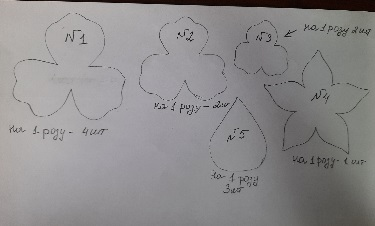 №1
на 1 розу - 4шт
№2
на 1 розу - 2шт
№3
на 1 розу 2шт
№4
на 1 розу - 1 шт
№5
на 1 розу
3шт